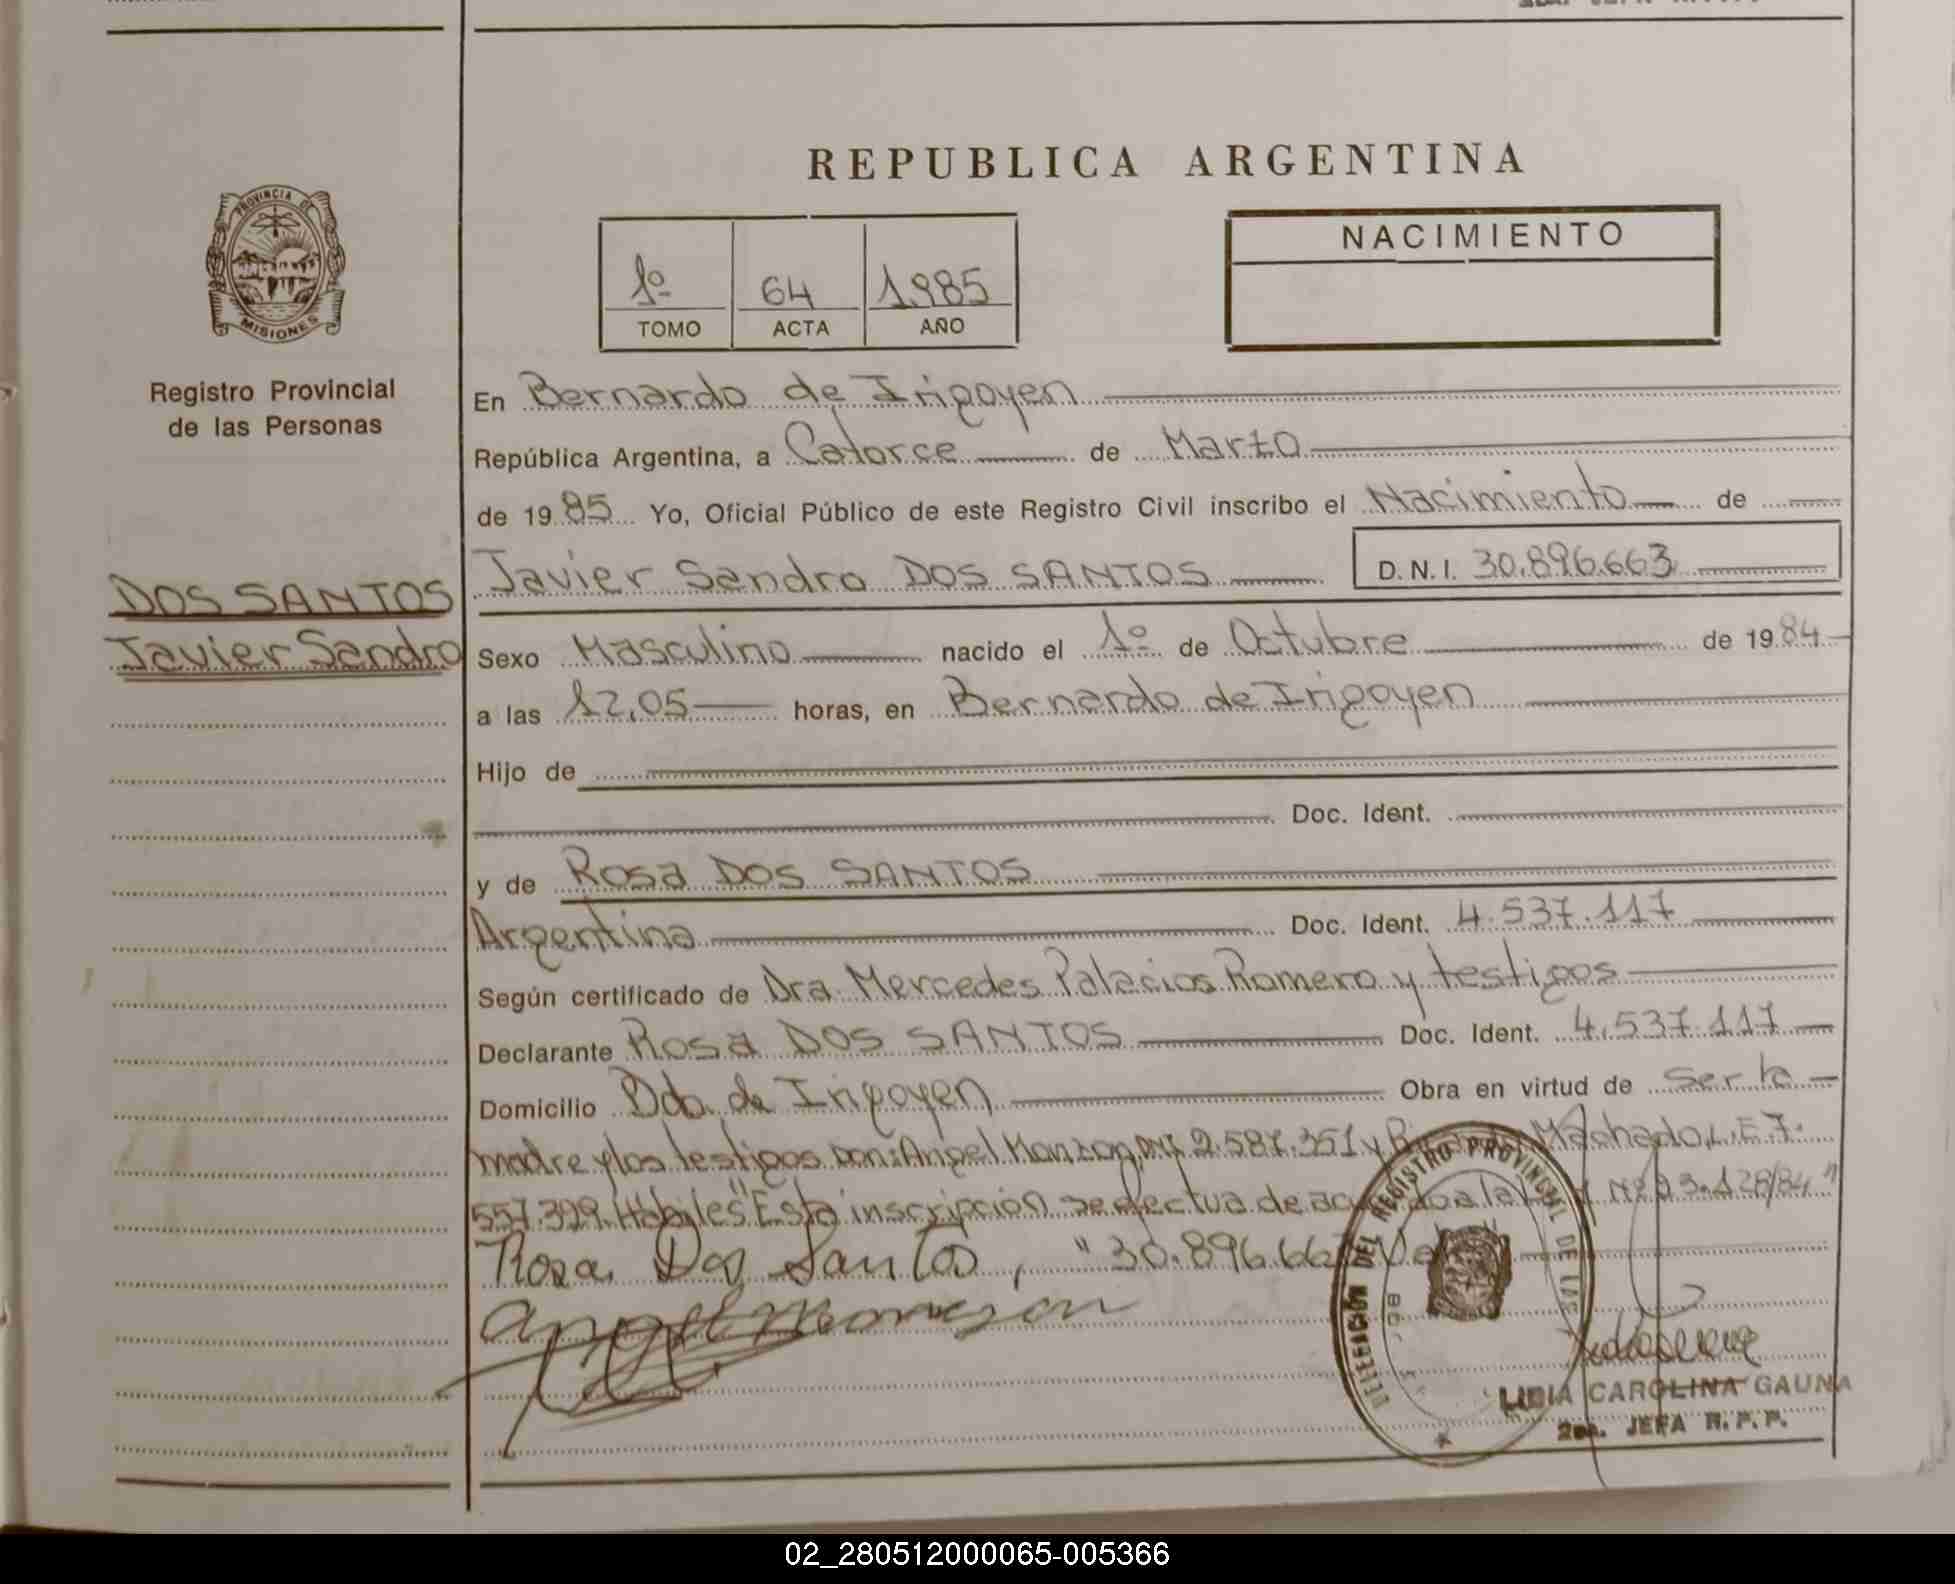 REPUBLICA ARGENTINA
PROVINCIA DE
MISIONES
Registro Provincial
de las Personas
1º 64 1985
TOMO ACTA AÑO
NACIMIENTO
En Bernardo de Irigoyen
República Argentina, a Catorce de Marzo
de 1985 Yo, Oficial Público de este Registro Civil inscribo el Nacimiento de
Javier Sandro DOS SANTOS D.N.I. 30.896.663
DOS SANTOS
Javier Sandro
Sexo Masculino nacido el 1º de Octubre de 1984
a las 12,05 horas, en Bernardo de Irigoyen
Hijo de
Doc. Ident.
y de Rosa DOS SANTOS
Argentina Doc. Ident. 4.537.117
Según certificado de Dra. Mercedes Palacios Romero y testigos
Declarante Rosa DOS SANTOS Doc. Ident. 4.537.117
Domicilio Bdo. de Irigoyen Obra en virtud de ser la
madre y los testigos Don: Angel Monzon, 2.587.351 y Machado, L.E. 7.
557.399. Hábiles "Esta inscripción se efectua de Nº 23.128/84"
Rosa Dos Santos, "30.896.66
DELEGACION DEL REGISTRO PROVINCIAL DE LAS
LIDIA CAROLINA GAUNA
2da. JEFA R.P.P.
02_280512000065-005366